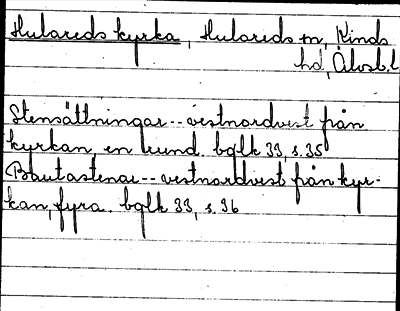 Hulareds kyrka, Hulareds sn, Kinds
hd, Älvsb.l
Stensättningar -- vestnordvest från
kyrkan, en rund. bglk 33, s. 35
Bautastenar -- vestnordvest från kyr-
kan, fyra. bglk 33, s. 36